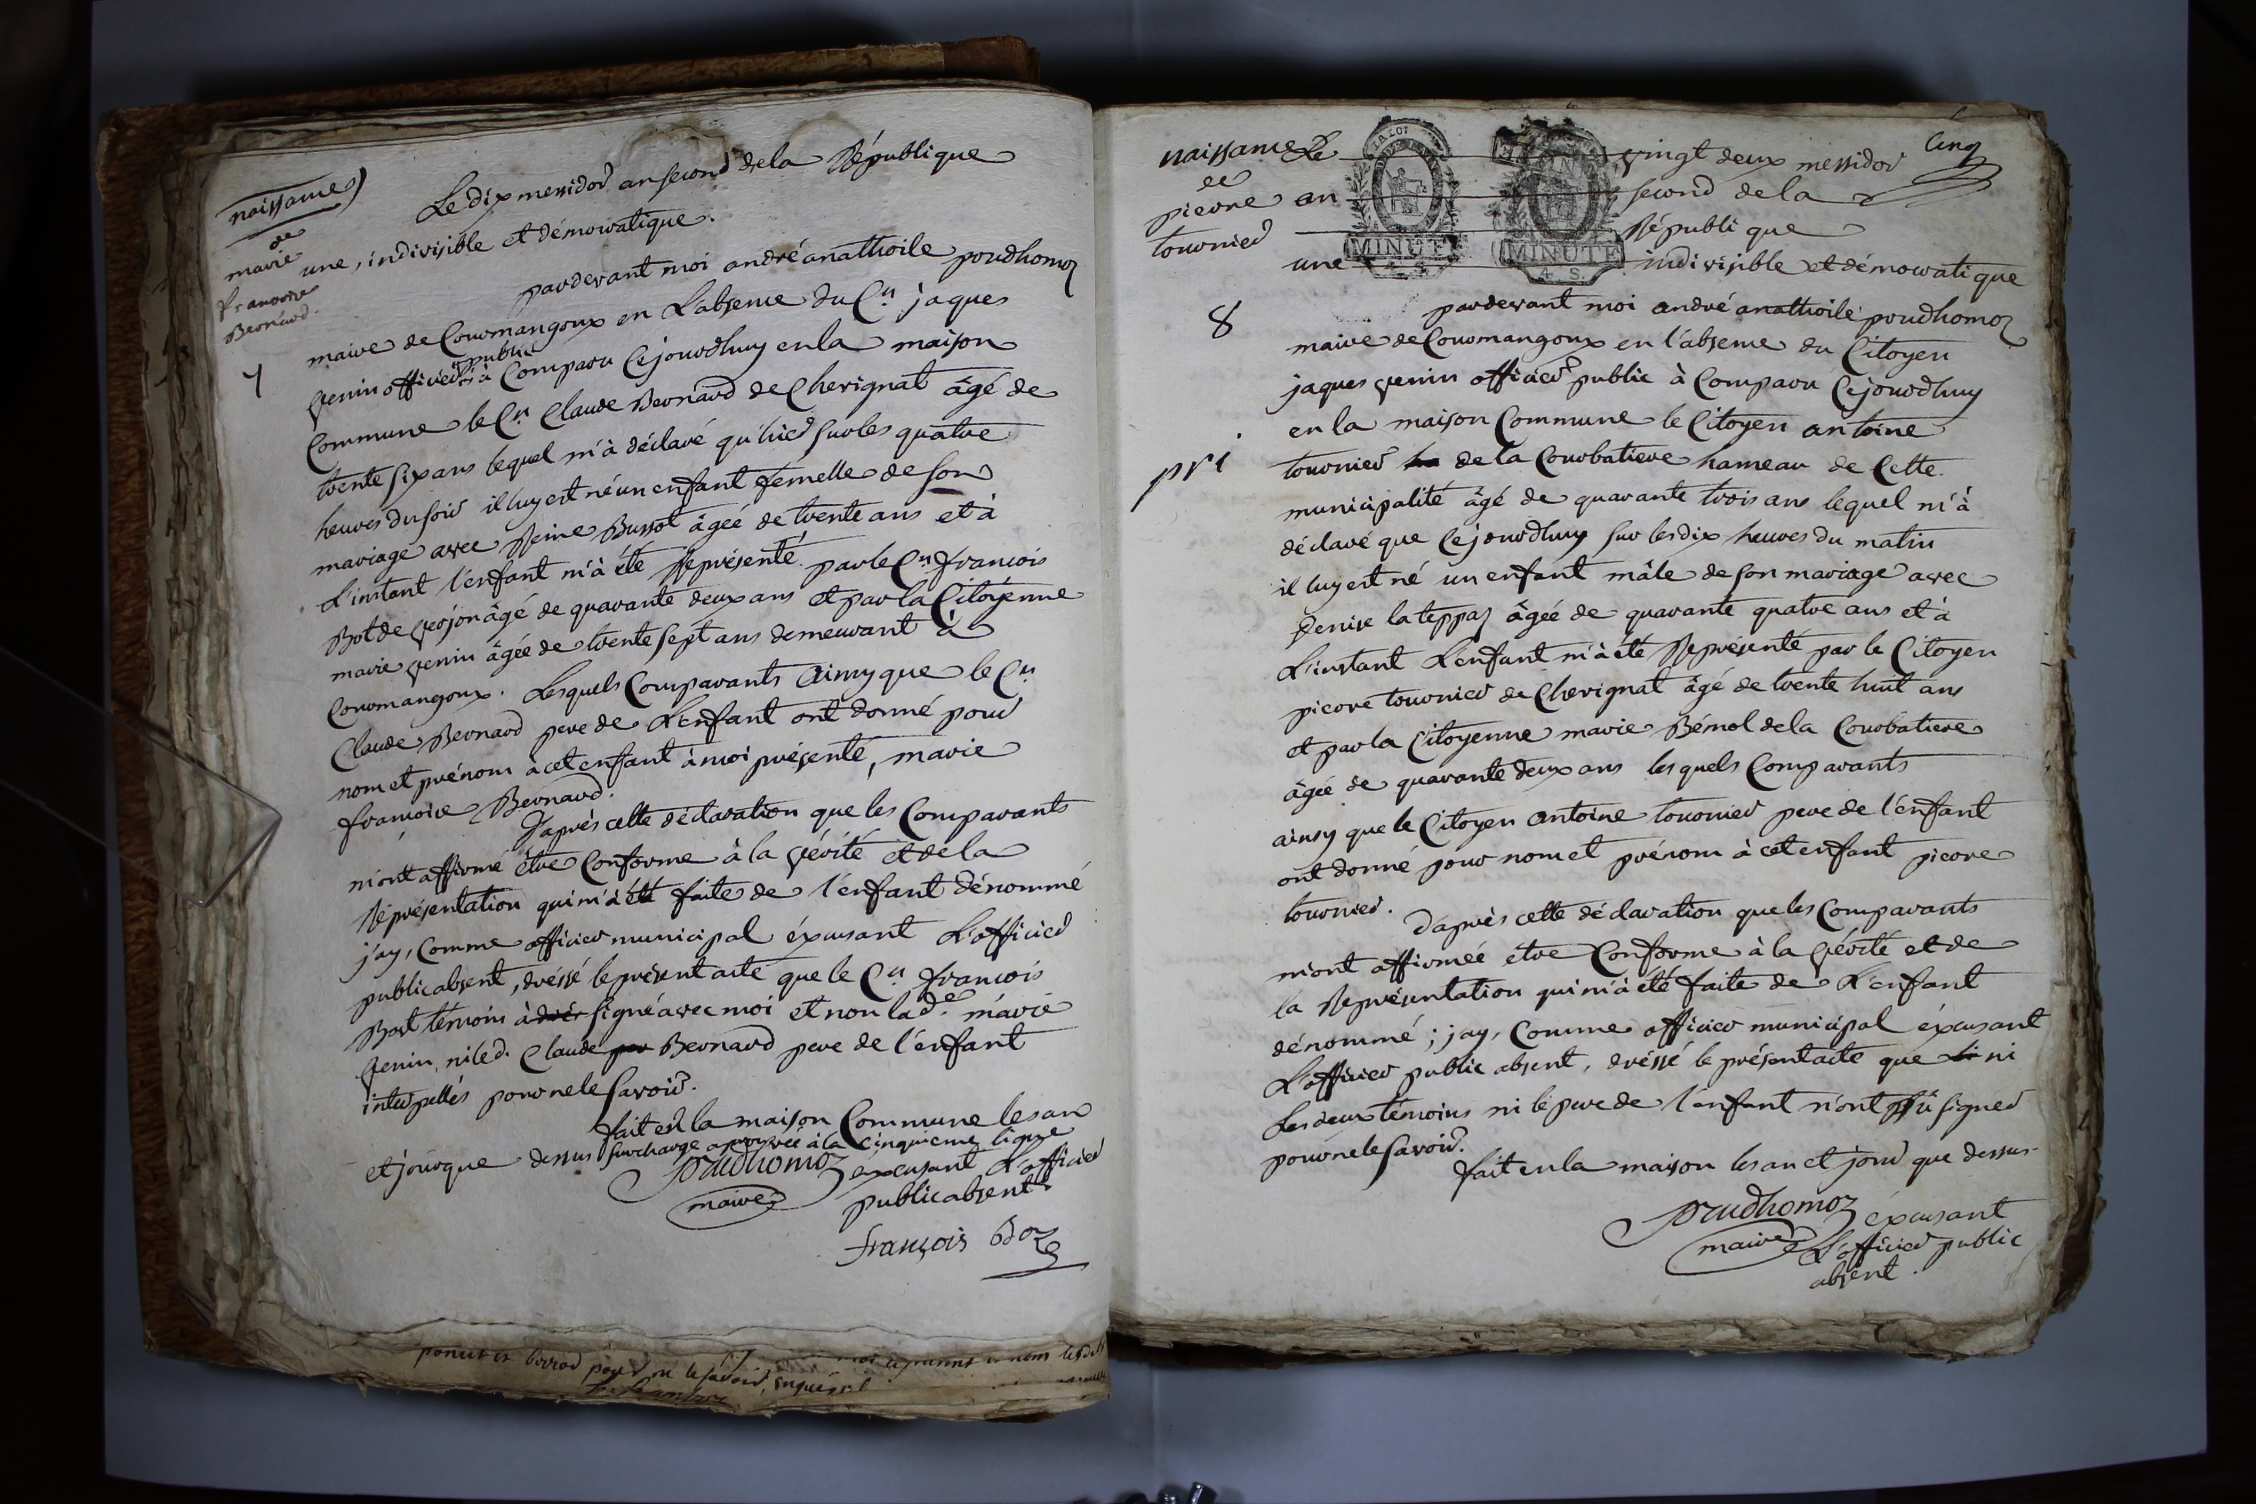 naissance
de
marie
françoise
Bernard.
7
Le dix messidor an second de la République
une, indivisible et démocratique.
pardevant moi andré anathoile prudhomoz
maire de Courmangoux en L'absence du Cn. jaques
public
Genin officier à Comparu Cejourdhuy en la maison
Commune le Cn Claude Bernard de Cherignat âgé de
trente six ans lequel m'à déclaré qu'hier sur les quatre
heures du soir il luy est né un enfant femelle de son
mariage avec Reine Bussot âgée de trente ans et à
L'instant l'enfant m'à été Représenté par le Cn françois
Bot de Rojon âgé de quarante deux ans et par la Citoyenne
marie Genin âgée de trente sept ans demeurant à
Courmangoux. Lesquels Comparants Ainsy que le Cn
Claude Bernard pere de L'enfant ont donné pour
nom et prénom à cet enfant à moi présenté, marie
françoise Bernard.
D'après cette déclaration que les Comparants
m'ont affirmé être Conforme à la vérité et de la
Représentation qui m'à été faite de l'enfant dénommé
j'ay, Comme officier municipal éxcusant L'officier
public absent, dréssé le présent acte que le Cn françois
Bot témoin à signé avec moi et non lad. marie
Genin, ni led. Claude Bernard pere de l'enfant
interpellés pour ne le Savoir.
fait en la maison Commune les an
et jour que dessus surcharge approuvée à la Cinquieme ligne
prudhomoz excusant L'officier
maire public absent.
françois Boz
naissance
de
pierre
tournier
8
pri
Cinq
MINUTE
MINUTE
4. S.
Le vingt deux messidor
an second de la
République
une indivisible et démocratique
pardevant moi andré anathoile prudhomoz
maire de Courmangoux en l'absence du Citoyen
jaques Genin officier public à Comparu Cejourdhuy
en la maison Commune le Citoyen antoine
tournier de la Courbatiere hameau de Cette
municipalité âgé de quarante trois ans lequel m'à
déclaré que Cejourdhuy sur les dix heures du matin
il luy est né un enfant mâle de son mariage avec
Denise lateppaz âgée de quarante quatre ans et à
L'instant L'enfant m'à été Représenté par le Citoyen
pierre tournier de Cherignat âgé de trente huit ans
et par la Citoyenne marie Bémol de la Courbatiere
âgée de quarante deux ans lesquels Comparants
ainsy que le Citoyen antoine tournier pere de l'enfant
ont donné pour nom et prénom à cet enfant pierre
tournier.
D'après cette déclaration que les Comparants
m'ont affirmée être Conforme à la vérité et de
la Représentation qui m'à été faite de L'enfant
dénommé; j'ay, Comme officier municipal éxcusant
L'officier public absent, dréssé le présent acte que ni
Les deux témoins ni le pere de l'enfant n'ont sçu signer
pour ne le savoir.
fait en la maison les an et jour que dessus
prudhomoz éxcusant
maire L'officier public
absent.